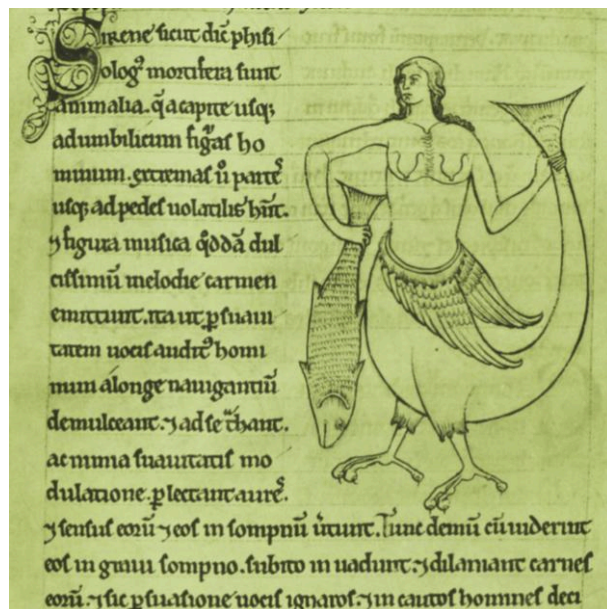 Sirene sicut dic̄ phisi
ologꝰ mortifera sunt
animalia. q̄ a capite usq;
ad umbilicum figᷓas ho
minum. extremas ū parteſ
uſq; ad pedeſ uolatiliſ hn̄t.
⁊ figura muſica q̄ddā dul
ciſſimū melodie carmen
emittunt. ita ut ꝑ ſuaui
tatem uociſ auditꝰ homi
num a longe nauigantiū
demulceant. ⁊ ad ſe t̄hant.
ac nimia ſuauitatiſ mo
dulatione ꝓlectant aureſ.
⁊ ſenſuſ eorū ⁊ eoſ in ſompnū ũtunt. Tunc demū cū uiderint
eoſ in graui ſompno. ſubito inuadunt. ⁊ dilaniant carneſ
eorū. ⁊ ſic ꝑſuaſione uociſ ignaroſ ⁊ incautoſ hominеſ deci